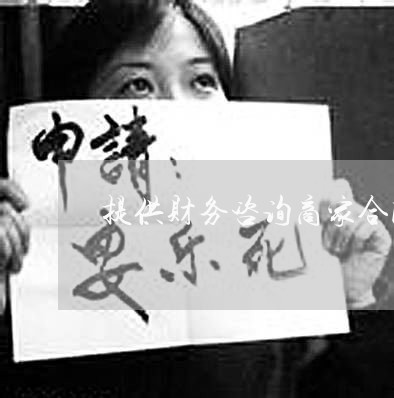 申請：
提供财务咨询商家合
安乐死